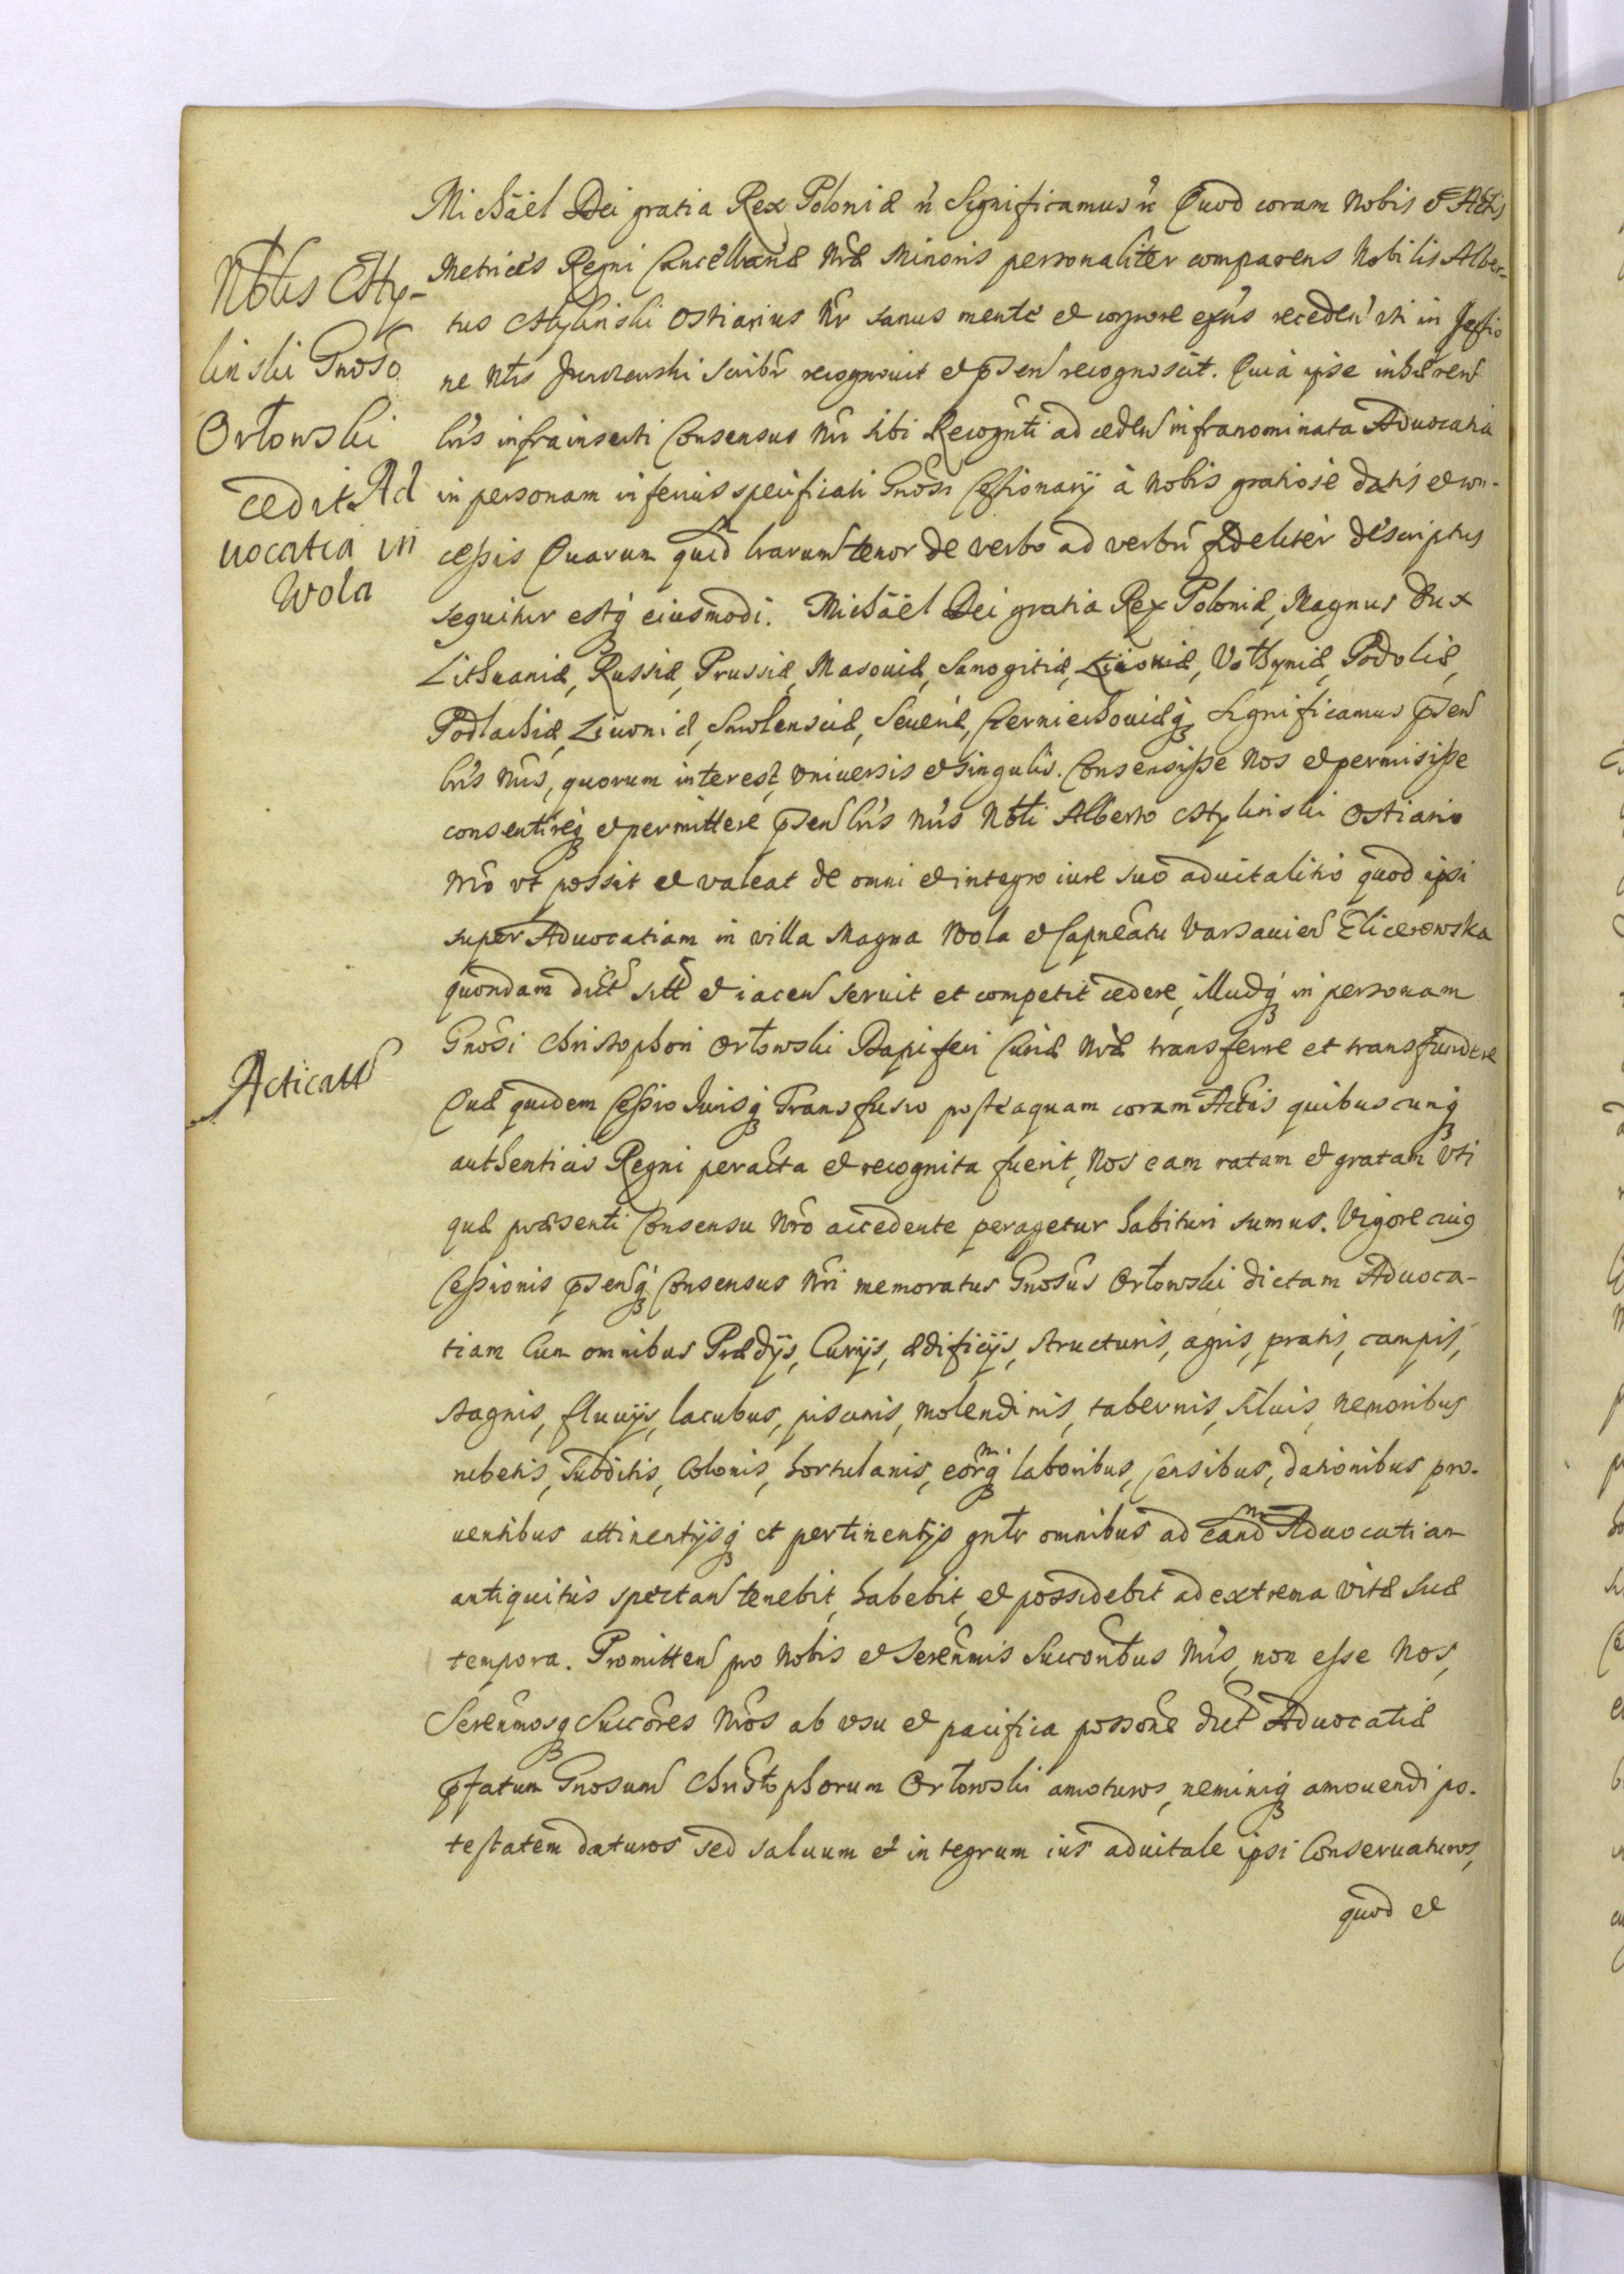 Michäel Dei gratia Rex Poloniæ n Significamus n Quod coram Nobis et Actis
Metrices Regni Cancellariæ Nræ Minoris personaliter comparens Nobilis Alber-
tus Mylinski Ostiarius Nr sanus mente et corpore exns receden uti in
ne Nts scribi recognovit et psen recognoscit. Quia ipse inhæren
lris infrainserti Consensus Nri sibi ad ceden infranominata Advocatia
in personam inferius specificati Gnosi Cessionarij à Nobis gratiosè datis et con-
cessis Quarum quid lrarum tenor de verbo ad verbu fideliter descriptus
sequitur estq eiusmodi. Michäel Dei gratia Rex Poloniæ, Magnus Dux
Lithuaniæ, Russiæ, Prussiæ, Masoviæ, Samogitiæ, Kijoviæ, Volhyniæ, Podoliæ,
Podlachiæ, Livoniæ, Smolensciæ, Severiæ, Czerniechoviæq Significamus psen
lris Nris, quorum interest, universis et singulis. Consensisse Nos et permisisse
consentireq et permittere psen lris Nris Nbli Alberto Mylinski Ostiario
Nro ut possit et valeat de omni et integro iure suo advitalitio quod ipsi
super Advocatiam in villa Magna Wola et Capneatu Varsavien Elicerowska
quondam dict sitt et iacen servit et competit cedere, illudq in personam
Gnosi Christophori Orłowski Dapiferi Curiæ Nræ transferre et transfundere
Quæ quidem Cessio Iurisq Transfusio posteaquam coram Actis quibuscunq
authenticis Regni peracta et recognita fuerit, Nos eam ratam et gratam uti
quæ præsenti Consensu Nro accedente peragetur habituri sumus. Vigore cuius
Cessionis psenq Consensus Nri memoratus Gnosus Orłowski dictam Advoca-
tiam Cum omnibus Prædijs, Curijs, ædificijs, structuris, agris, pratis, campis,
stagnis, fluvijs, lacubus, piscinis, molendinis, tabernis, silvis, nemoribus
rubetis, subditis, Colonis, hortulanis, eormq laboribus, Censibus, dationibus pro-
ventibus attinentijsq et pertinentijs gnlr omnibus ad eandm Advocatiam
antiquitùs spectan tenebit, habebit, et possidebit ad extrema vitæ suæ
tempora. Promitten pro Nobis et Serenmis Succoribus Nris, non esse Nos,
Serenmosq Succores Nros ab usu et pacifica possone dict Advocatiæ
pfatum Gnosum Christophorum Orłowski amoturos, neminiq amovendi po-
testatem daturos sed salvum et integrum ius advitale ipsi Conservaturos,
quod et
Nblis Mly-
linski Gnoso
Orłowski
cedit Ad
vocatia in
Wola
Acticatt